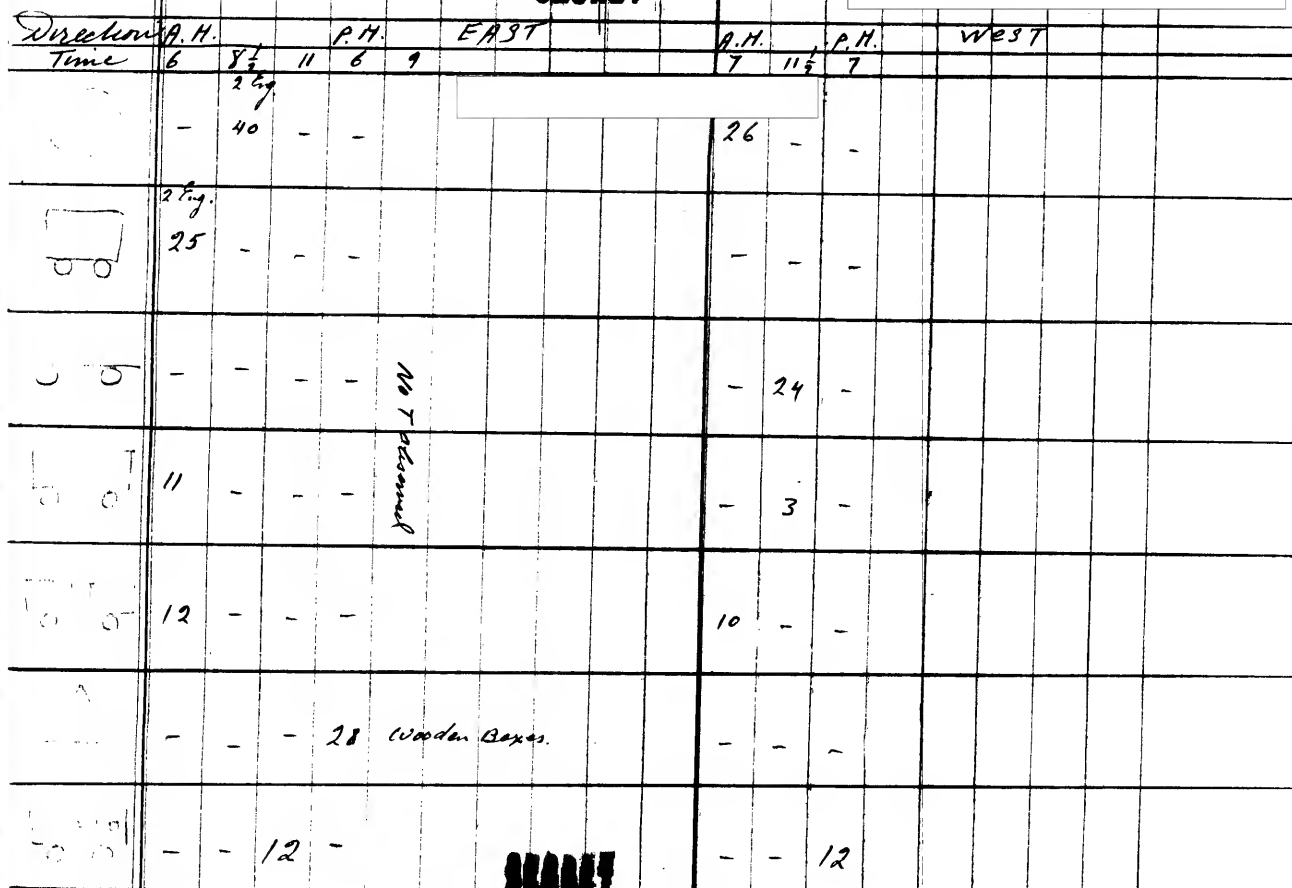 Direction A.M. P.M. EAST A.M. P.M. WEST
Time 6 8½ 11 6 9 7 11½ 7
2 Eng.
- 40 - - 26 - -
2 Eng.
25 - - - - - -
- - - - - 24 -
No T observed
11 - - - - 3 -
12 - - - 10 - -
- - - 28 Wooden Boxes. - - -
- - 12 - - - 12